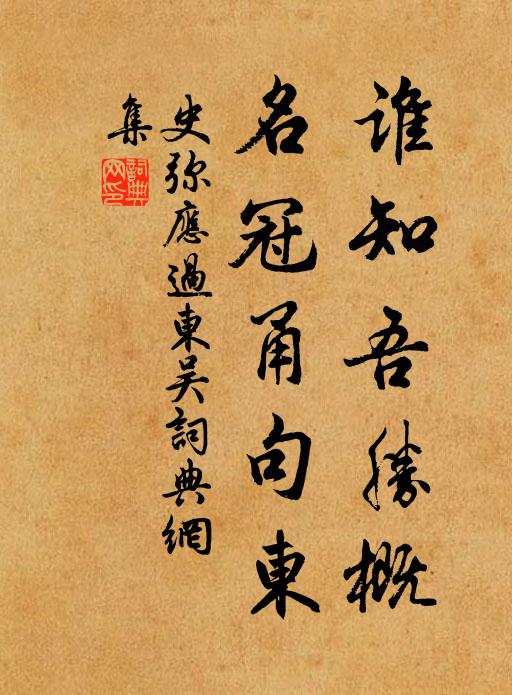 誰知吾勝概
名冠甬句東
史弥應過東吴詞典網
集
詞典網印